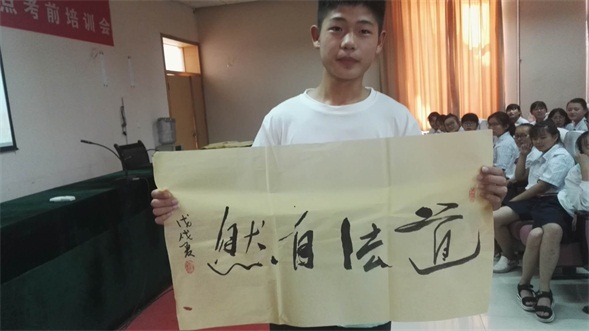 点考前培训会
道法自然
戊戌夏